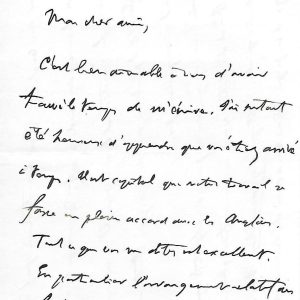 Mon cher ami,
C'est bien aimable à vous d'avoir
trouvé le temps de m'écrire. J'ai surtout
été heureux d'apprendre que vous étiez arrivé
à temps. Il est capital que notre travail se
fasse en plein accord avec les Anglais.
Tout ce que vous me dites est excellent.
En particulier l'arrangement relatif aux